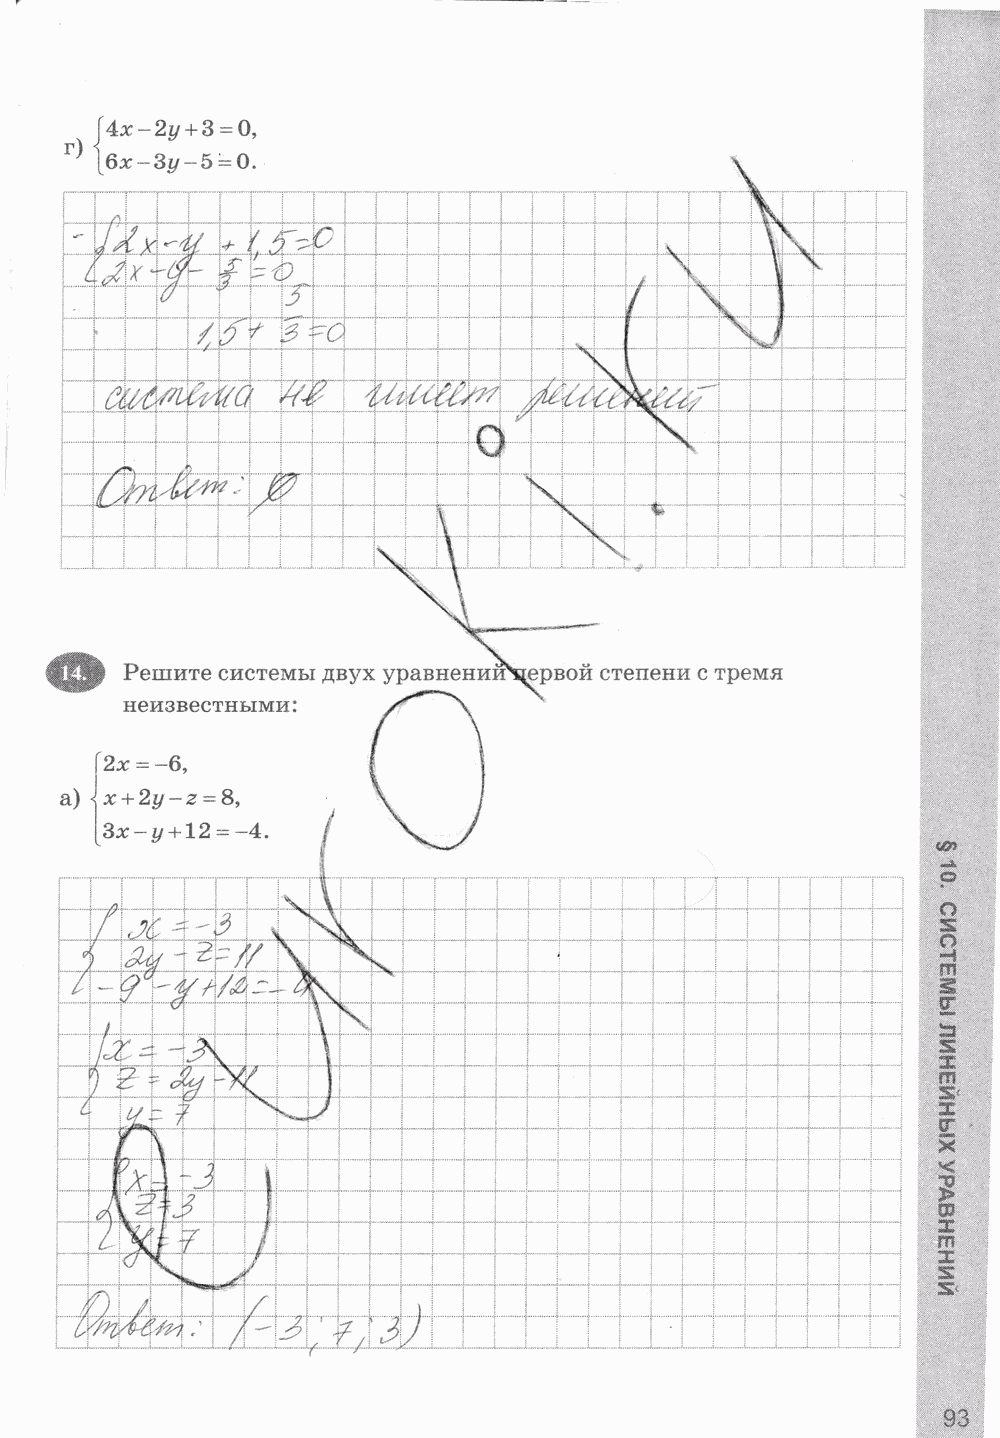 г) {4x − 2y + 3 = 0,
6x − 3y − 5 = 0.
- {2x − y + 1,5 = 0
2x − y − 5/3 = 0
1,5 + 5/3 = 0
система не имеет решений
Ответ: ∅
14. Решите системы двух уравнений первой степени с тремя
неизвестными:
а) {2x = −6,
x + 2y − z = 8,
3x − y + 12 = −4.
{x = −3
2y − z = 11
−9 − y + 12 = −4
{x = −3
z = 2y − 11
y = 7
{x = −3
z = 3
y = 7
Ответ: (−3; 7; 3)
§ 10. СИСТЕМЫ ЛИНЕЙНЫХ УРАВНЕНИЙ
93